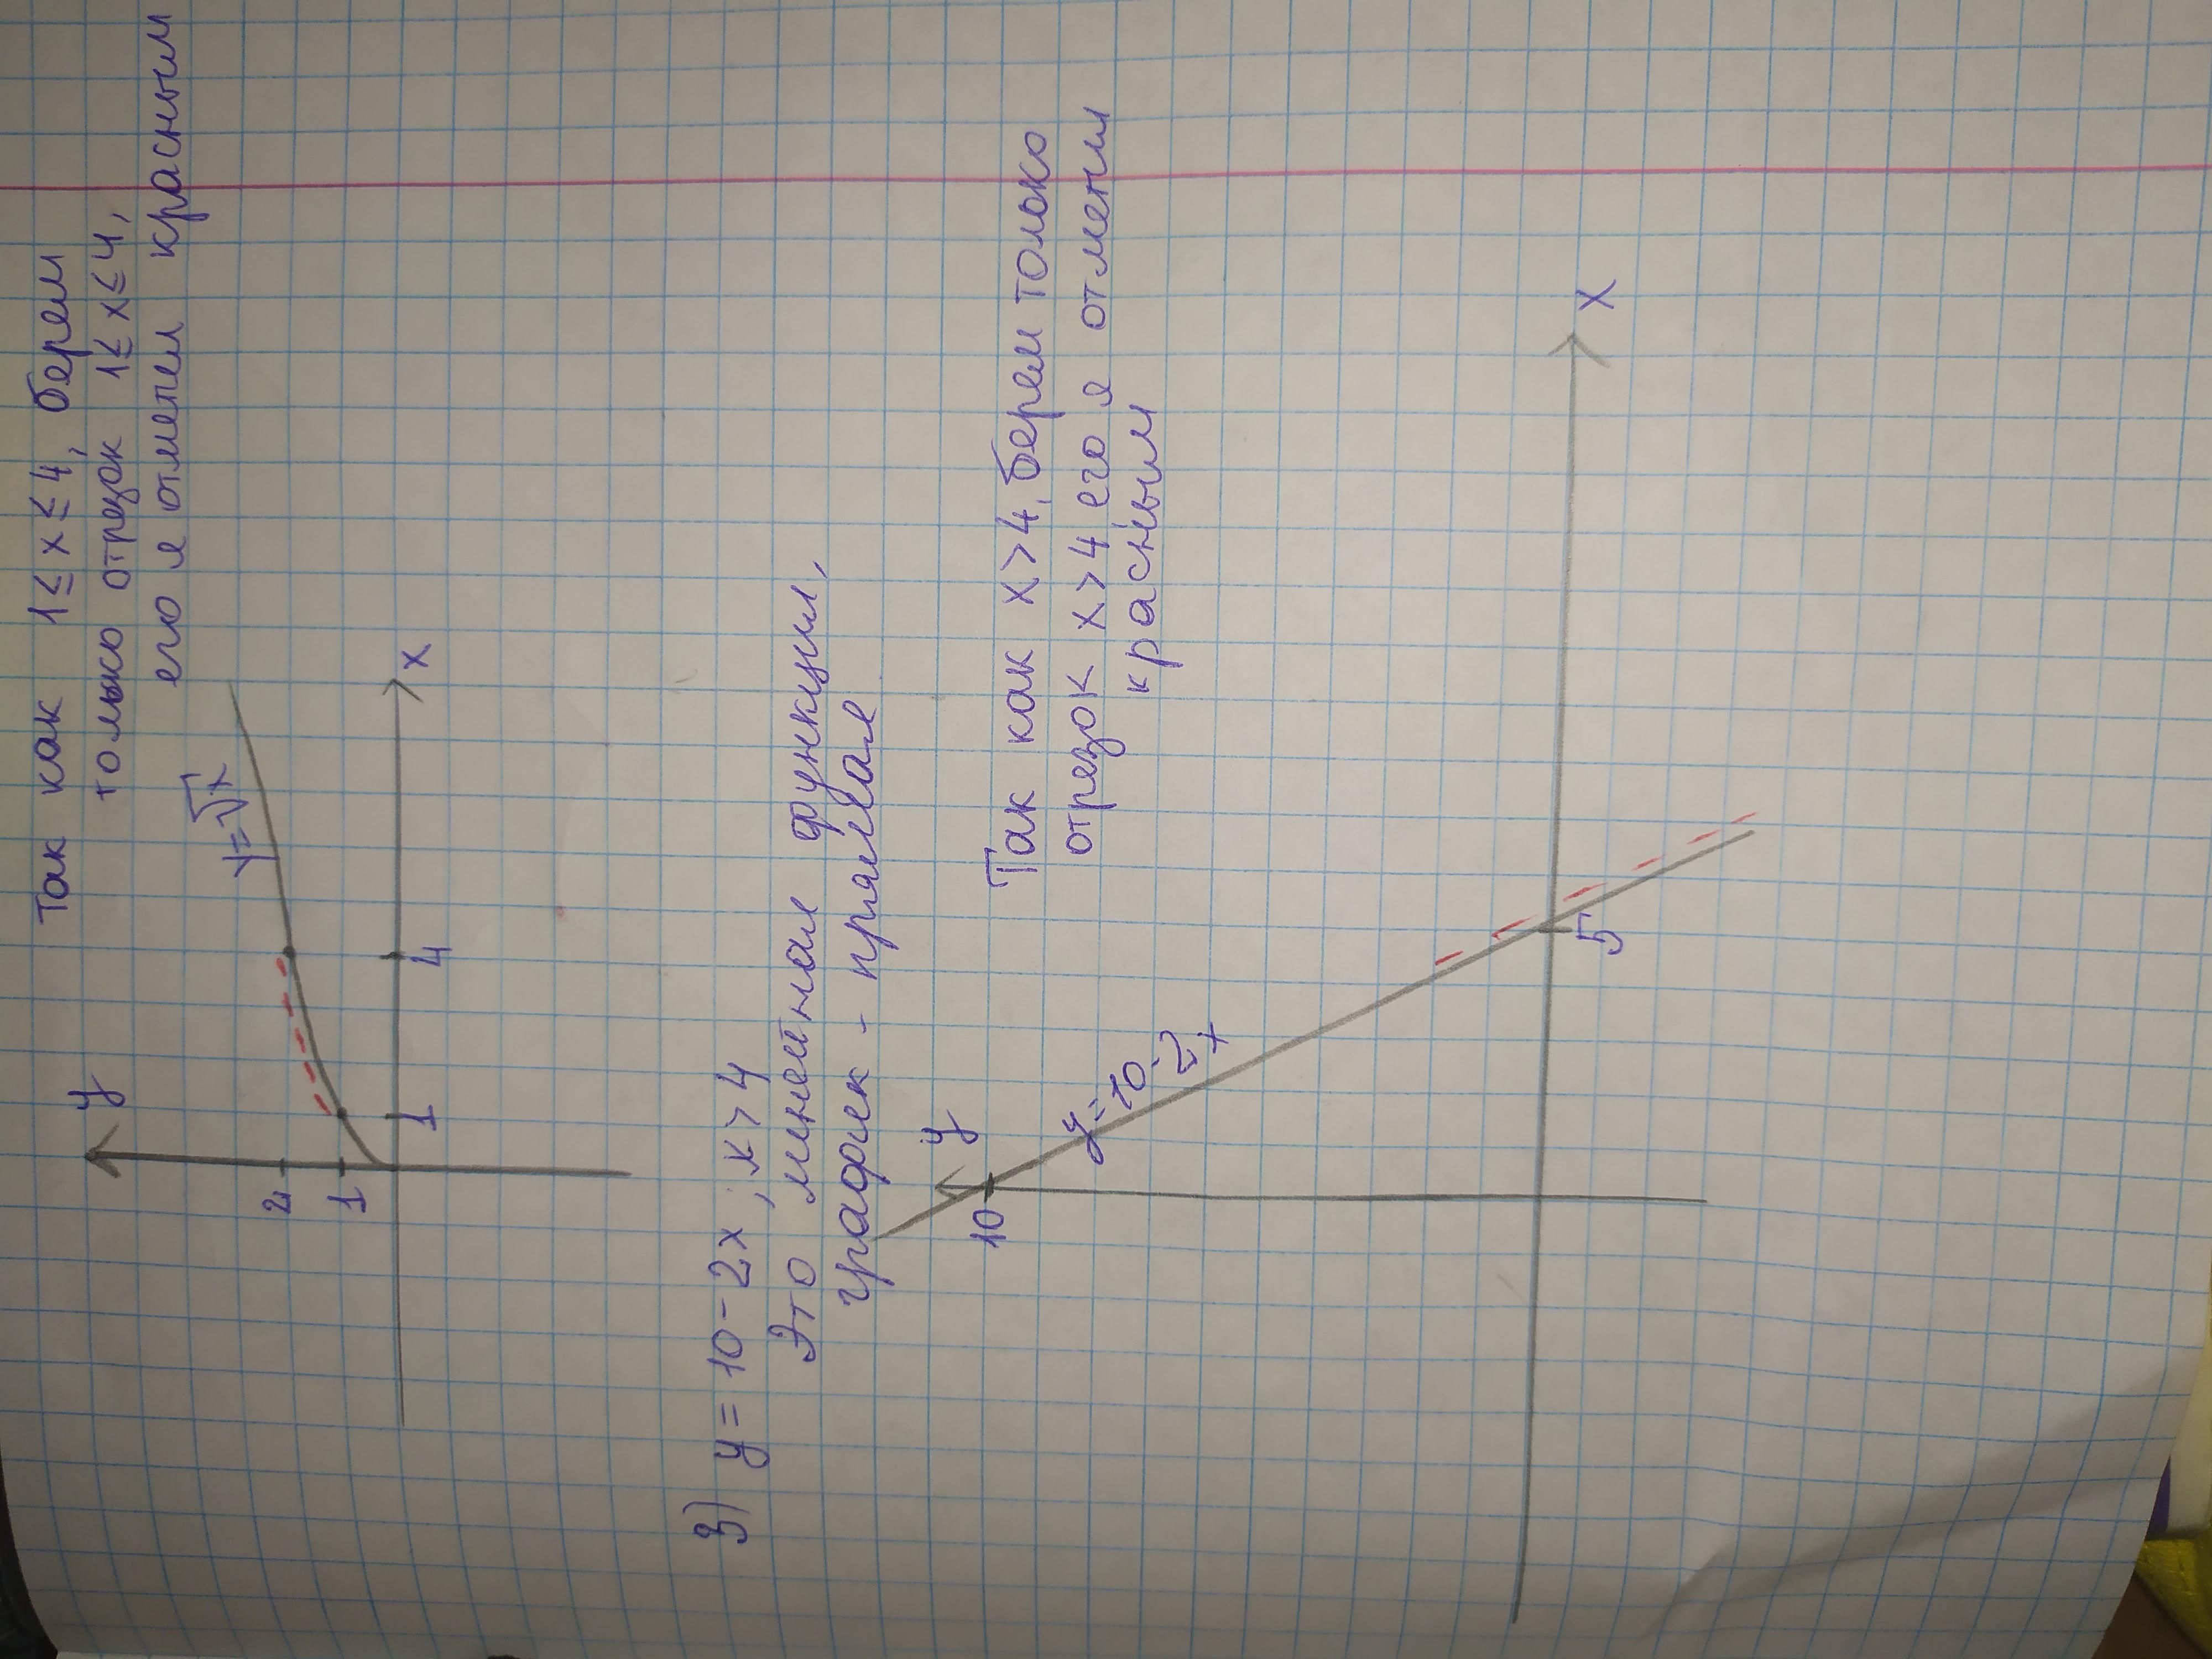 Так как 1 ≤ x ≤ 4, берем
только отрезок 1 ≤ x ≤ 4,
его я отметил красным
y
y=√x
2
1
1
4
x
3) y = 10 - 2x ; x > 4
Это линейная функция,
график - прямая
Так как x > 4, берем только
отрезок x > 4 его я отметил
красным
y
10
y=10-2x
5
x